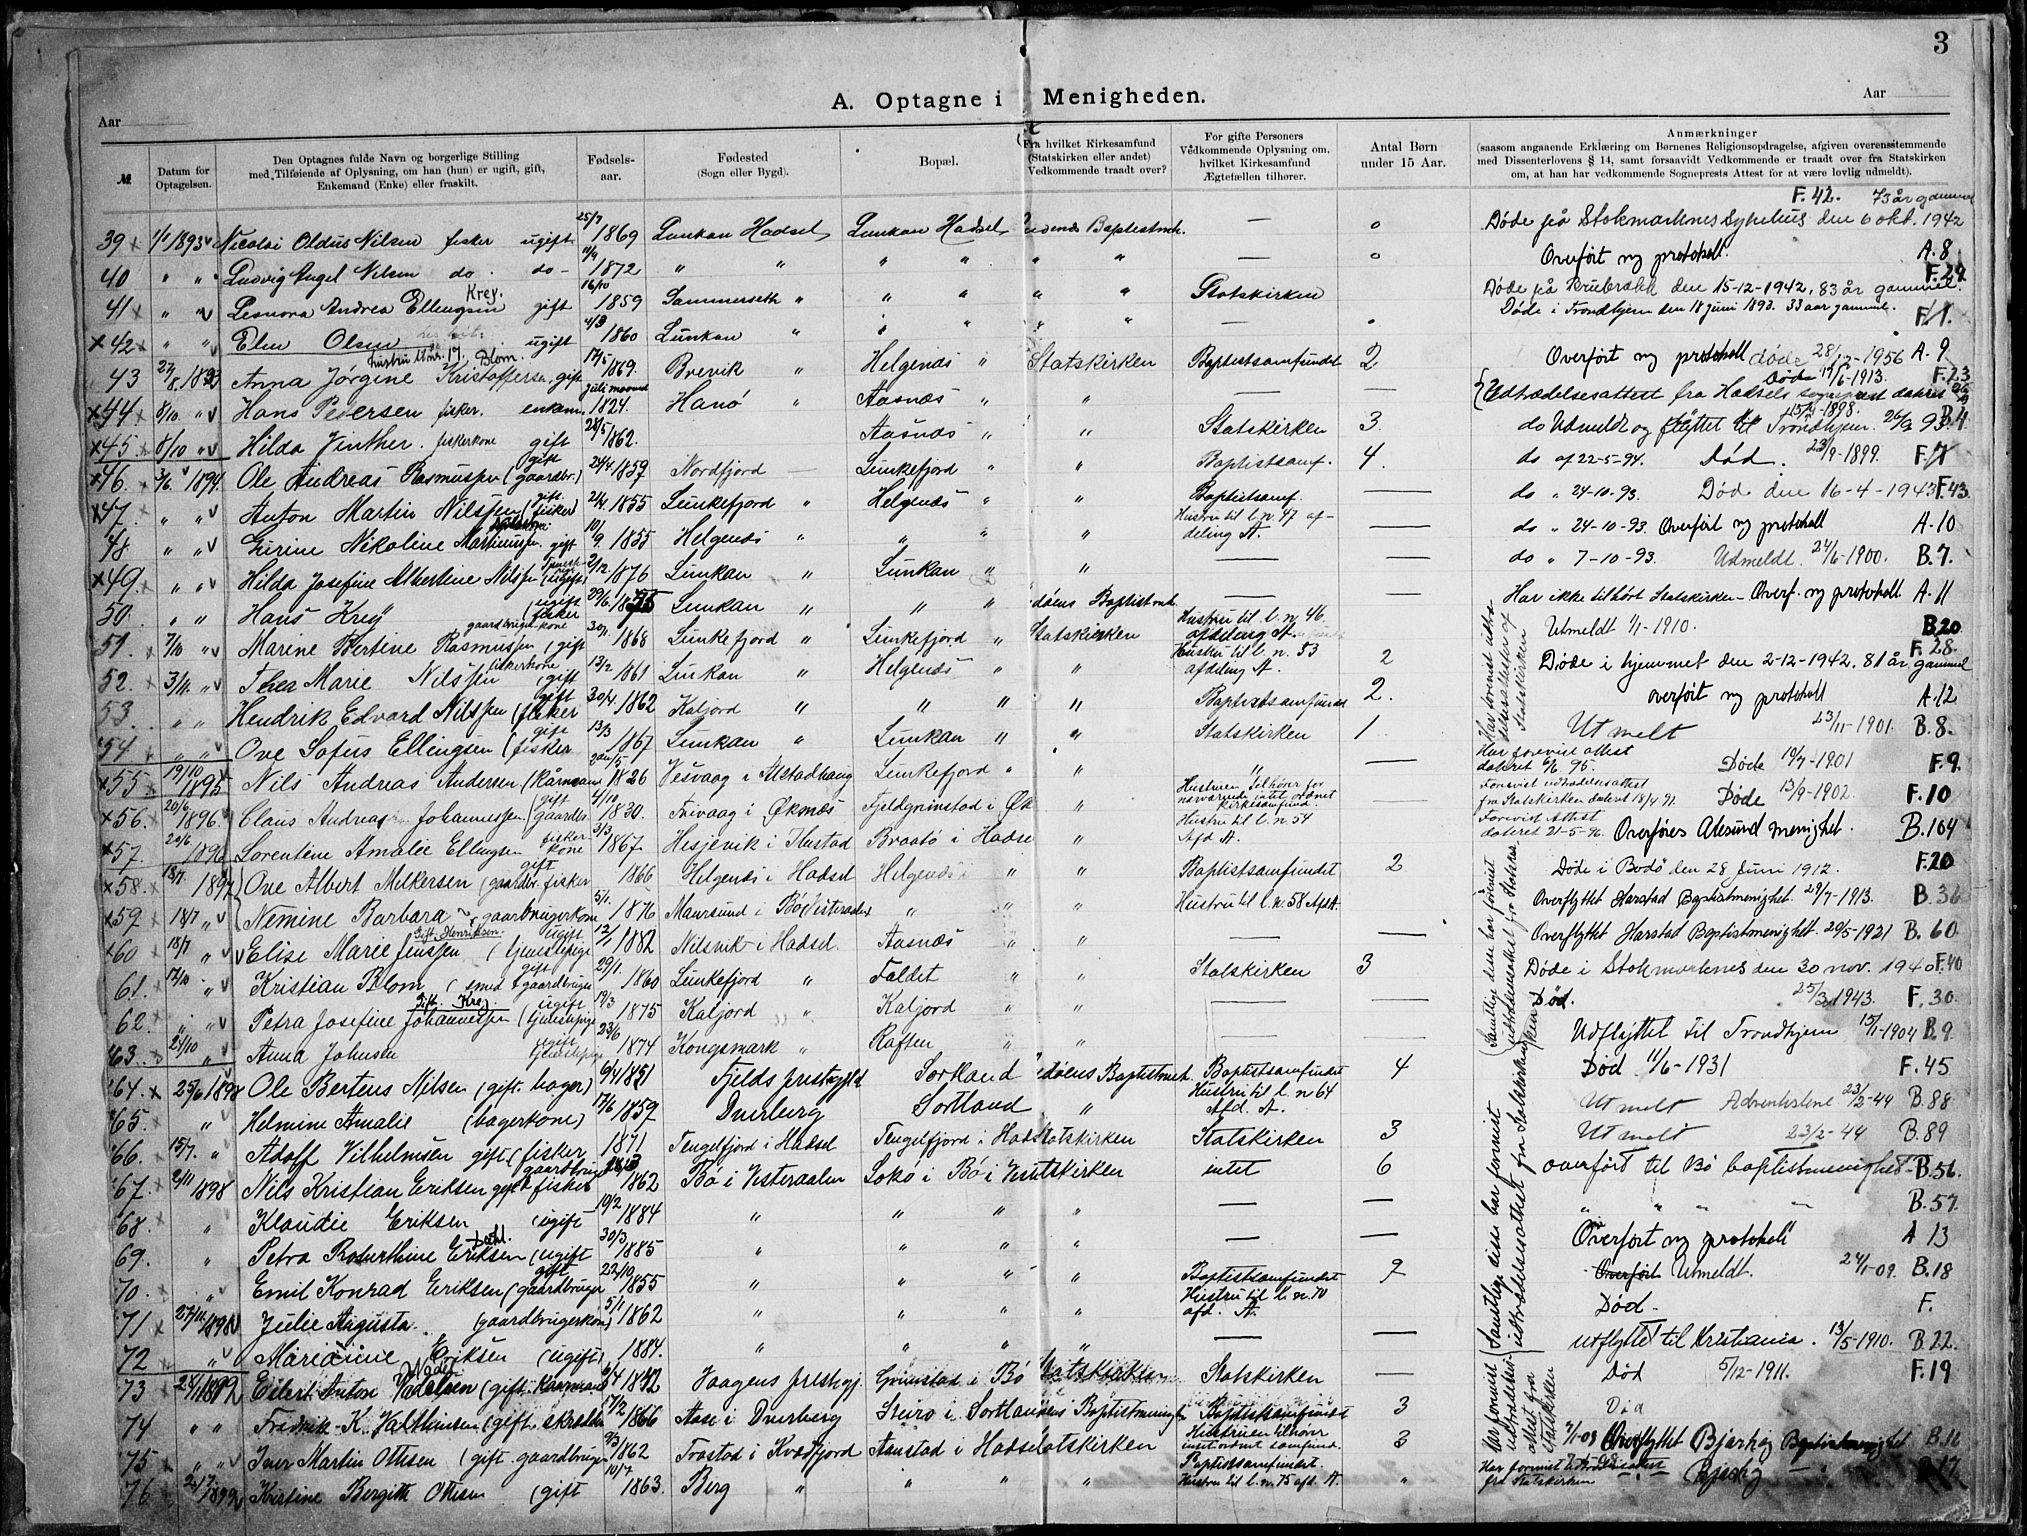 3
A. Optagne i Menigheden.
Aar
Aar
№
Datum for Optagelsen.
Den Optagnes fulde Navn og borgerlige Stilling med Tilføiende af Oplysning, om han (hun) er ugift, gift, Enkemand (Enke) eller fraskilt.
Fødsels-aar.
Fødested (Sogn eller Bygd).
Bopæl.
Fra hvilket Kirkesamfund (Statskirken eller andet) Vedkommende traadt over?
For gifte Personers Vedkommende Oplysning om, hvilket Kirkesamfund Ægtefællen tilhører.
Antal Børn under 15 Aar.
Anmærkninger (saasom angaaende Erklæring om Børnenes Religionsopdragelse, afgiven overensstemmende med Dissenterlovens § 14, samt forsaavidt Vedkommende er traadt over fra Statskirken om, at han har vedkommende Sogneprests Attest for at være lovlig udmeldt).
F. 42. 73 år gammel
39 1/1 1893 Nicolai Oldus Nilsen fisker ugift 25/7 1869 Lunkan Hadsel Lunkan Hadsel Baptistmh. — 0 Døde på Stokmarknes sykehus den 6 okt. 1942
40 " " Ludvig Angel Nilsen do. do- 11/9 1872 " " " " " " — 0 Overført ny protokoll. A. 8
41 " " Leonora Andrea Ellingsen Krey. gift 16/10 1859 Sammerseth " " " " " Statskirken Døde på den 15-12-1942, 83 år gammel. F. 29
42 " " Elen Olsen ugift 4/3 1860 Lunkan " " " " " — Døde i Trondhjem den 18 juni 1893. 33 aar gammel. F. 1.
43 27/8 1893 Anna Jørgine Kristoffersen Blom. gift 17/5 1869. Brevik " Helgenæs " Statskirken Baptistsamfundet 2 Overført ny protokoll døde 28/12-1956 A. 9
44 8/10 " Hans Pedersen fisker. enkem. juli maaned 1824. Hanø " Aasnæs " " — — Udtrædelsesattest fra Hadsels sogneprest dateret Død 17/6-1913. F. 23
45 8/10 " Hilda Vinther. fiskerkone gift 28/5 1862. Aasnæs " " Statskirken 3 do Udmeldt og flyttet til Trondhjem 15/4-1898. 26/9 93. B. 4
46. 3/6 1894 Ole Andreas Rasmussen (gift gaardbr.) 24/4 1859 Nordfjord — Lunkefjord " " Baptistsamf. 4. do af 22-5-94. Død. 23/9-1899. F. 7
47. " " Anton Martin Nilssen (gift fisker) 2/4 1855 Lunkefjord " Helgenæs " " Baptistsamf. — do " 24-10-93. Død den 16-4-1943 F. 43
48 " " Gurine Nikoline Martinussen gift 10/9 1855 Helgenæs " " " " Hustru til l. n. 47 afdeling A. — do " 24-10-93. Overført ny protokoll A. 10
49. " " Hilda Josefine Albertine Nilssen (ugift) 2/12 1876 Lunkan " Lunkan " " — do " 7-10-93. Udmeldt. 24/6-1900. B. 7.
50. " " Hans Krey (ugift fisker 29/6 1875 Lunkan " " " Baptistmh. — — Har ikke tilhørt Statskirken – Overf. ny protokoll A. 11
51. 7/10 " Marine Bertine Rasmussen gaardbrugerkone (gift 30/1 1868 Lunkefjord " Lunkefjord " Statskirken Hustru til l. n. 46. afdeling A. Utmeldt 1/1-1910. B. 20
52. 3/11. " Thea Marie Nilssen fiskerkone (gift 13/2 1861 Lunkan " Helgenæs " " Hustru til l. n. 53 afdeling A. 2 Døde i hjemmet den 2-12-1942. 81 år gammel F. 28.
53. " " Hendrik Edvard Nilssen (gift fisker 30/4 1862 Kaljord " " " " Baptistsamfundet 2. overført ny protokoll A. 12
54. " " Ove Sofus Ellingsen (gift fisker 13/3 1867 Lunkan " Lunkan " " Statskirken 1. Utmelt 23/11-1901. B. 8.
55 19/10 1895 Nils Andreas Andersen (Kårmand 20/5 1826 Vesvaag i Alstadhaug Lunkefjord " " " — Har forevist attest dateret 6/6 95. Døde 19/7-1901 F. 9.
56. 20/6 1896. Claus Andreas Johannessen (gift gaardbr. 4/10 1830. Trivaag i Øksnæs Fjeldgrinstad i Øk " Hustruen tilhører for nærværende intet ordnet kirkesamfund. Forevist udtrædelsesattest fra Statskirken dateret 18/4 91. Døde 13/9-1902. F. 10
57. 20/6 1896 Lorentine Amalie Ellingsen fiskerkone 3/3 1867. Hesjevik i Ibestad Braatø i Hadse " Hustru til l. n. 54 Afd A. Forevist Attest dateret 21-5-96. Overføres Alesund menighet. B. 104
58. 18/7 1897 Ove Albert Melkersen (gift gaardbr. fisker 1866 Helgenæs i Hadsel Helgenæs i " " Baptistsamfundet 2 Døde i Bodø den 28 Juni 1912. F. 20
59 18/7 " Nemine Barbara (gaardbrugerkone 5/1. 1876 Maursund i Bø Vesteraalen " " Hustru til l. n. 58 Afd A. Overflyttet Harstad Baptistmenighet. 29/7-1913. B. 36
60 18/7 " Elise Marie Jenssen Gift Henriksen. (ugift tjenestepige 12/1 1882 Nilsvik i Hadsel Aasnæs " " — — Overflyttet Harstad Baptistmenighet. 29/5-1921 B. 60
61. 17/10 " Kristian Blom (gift smed & gaardbruger 29/1. 1860 Lunkefjord " Faldet " " Statskirken 3 Døde i Stokmarknes den 30 nov. 1940 F. 40
62. " " Petra Josefine Johannessen Gift Krey (ugift tjenestepige 19/3 1875 Kaljord " Kaljord " " — — Død. 25/3 1943. F. 30.
63 24/10 " Anna Johnsen ugift tjenestepige 23/6 1874 Kongsmark " Raften " " — — Udflyttet til Trondhjem 15/1-1904 B. 9
64. 25/6 1898 Ole Berteus Nilsen (gift. bager) 6/4 1851 Fjelds prestegjeld Sortland Baptistmh. Baptistsamfundet 4 Død 11/6-1931 F. 45
65. " Helmine Amalie (bagerkone) 17/6 1859 Dverberg Sortland " Hustru til l. n 64 Afd. A. Utmelt Adventistene 23/2-44 B. 88
66. 15/7. " Adolf Vilhelmsen gift (fisker 1871 Tengelfjord i Hadsel Tengelfjord i Hads Statskirken Statskirken 3 Utmelt 23/2-44 B. 89
67. 2/11 1898 Nils Kristian Eriksen gift gaardbruger fisker 1862 Bø i Vesteraalen Sokø i Bø i Vest Statskirken intet 6 overført til Bø baptistmenighet B. 56.
68. " Klaudie Eriksen (ugift 19/2 1884 " " " " — — " " " — B. 57.
69. " Petra Roberthine Eriksen Dahl. (ugift 30/3 1885 " " " " — — Overført ny protokoll A 13
70. " Emil Konrad Eriksen (gift gaardbruger 22/10 1855 " " " " Baptistsamfundet 2 Overført Utmeldt. 24/1-09. B. 18
71 27/11 1898 Julie Augusta. (gaardbrugerkone) 5/1 1862 " " " " Hustru til l. n. 70 afd. A. Død. F.
72 " Mariasine Eriksen (ugift) 1884. " " " " — — utflyttet til Kristiania. 13/5-1910. B. 22.
73 1892 Eilert Anton (gift. Kaarmand 1842 Vaagens prestegj. Grimstad i Bø Statskirken Statskirken — Død 5/12-1911. F. 19
74 " " Fredrik K. Valthinsen (gift. skredder 1866 Aase i Dverberg i Sortland Baptistmenigh Baptistsamfundet 3 Død
75 " " Iver Martin Ottesen (gift gaardbruger 9/3 1862 Trastad i Kvædfjord Aanstad i Hadsel Statskirken Hustruen tilhører intet ordnet samfund. 3 Overflyttet Bjarkøy Baptistmenighet B. 16
76 Kristine Bergitte Ottesen (gift 10/7 1863. Berg " " " Baptistsamfundet. Hustru til l. n. 75 afd. A. " Har forevist Udtrædelsesattest fra Statskirken Bjarkøy — " — B. 17
Har forevist udtrædelsesattester af Statskirken
Samtlige disse har forevist udtrædelsesattest fra Statskirken
Samtlige disse har forevist udtrædelsesattest fra Statskirken
Har forevist udtrædelsesattest fra Statskirken